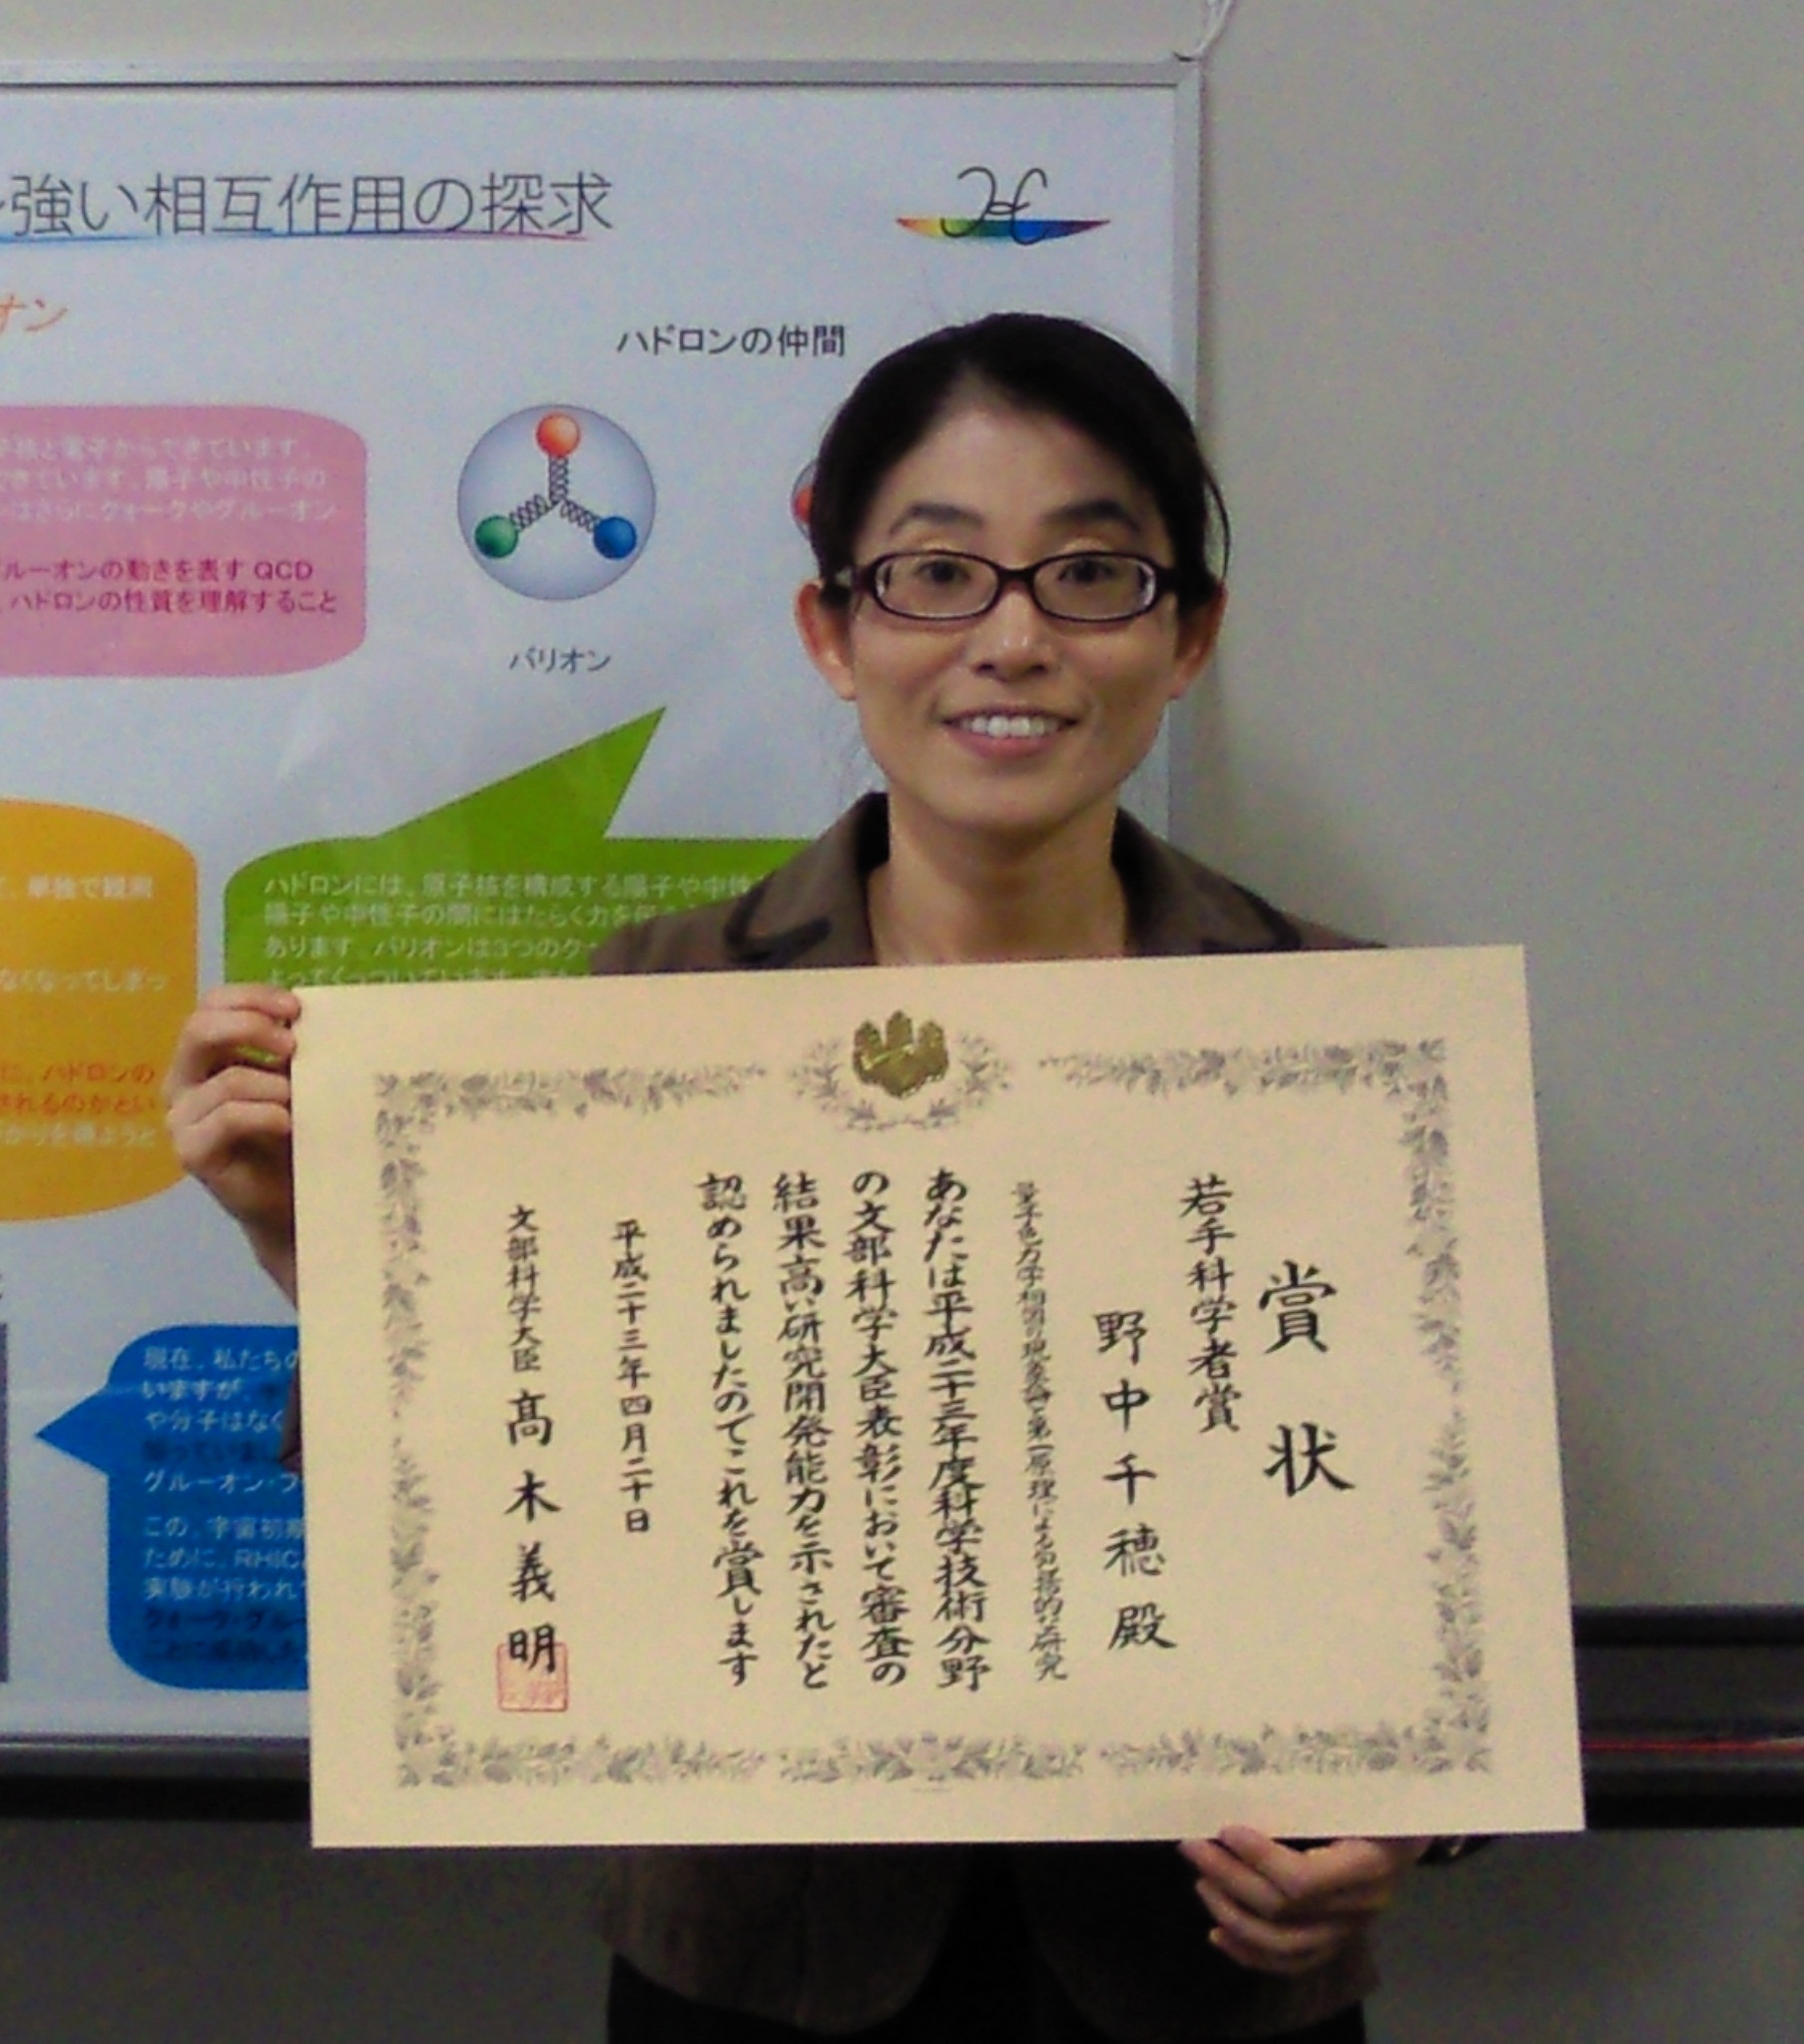 強い相互作用の探求
オン
ハドロンの仲間
子核と電子からできています。
できています。陽子や中性子の
はさらにクォークやグルーオン
ルーオンの動きを表す QCD
ハドロンの性質を理解すること
バリオン
て、単独で観測
なくなってしまっ
に、ハドロンの
されるのかとい
かりを得ようと
ハドロンには、原子核を構成する陽子や中性
陽子や中性子の間にはたらく力を
あります。バリオンは3つのク
よってくっついています。
現在、私たちの
いますが、
や分子はなく
グルーオン・プ
この、宇宙初期
ために、RHIC
実験が行われ
クォーク・グルー
賞状
若手科学者賞
野中千穂殿
量子色力学相図の現象論と第一原理による包括的な研究
あなたは平成二十三年度科学技術分野
の文部科学大臣表彰において審査の
結果高い研究開発能力を示されたと
認められましたのでこれを賞します
平成二十三年四月二十日
文部科学大臣 髙木義明